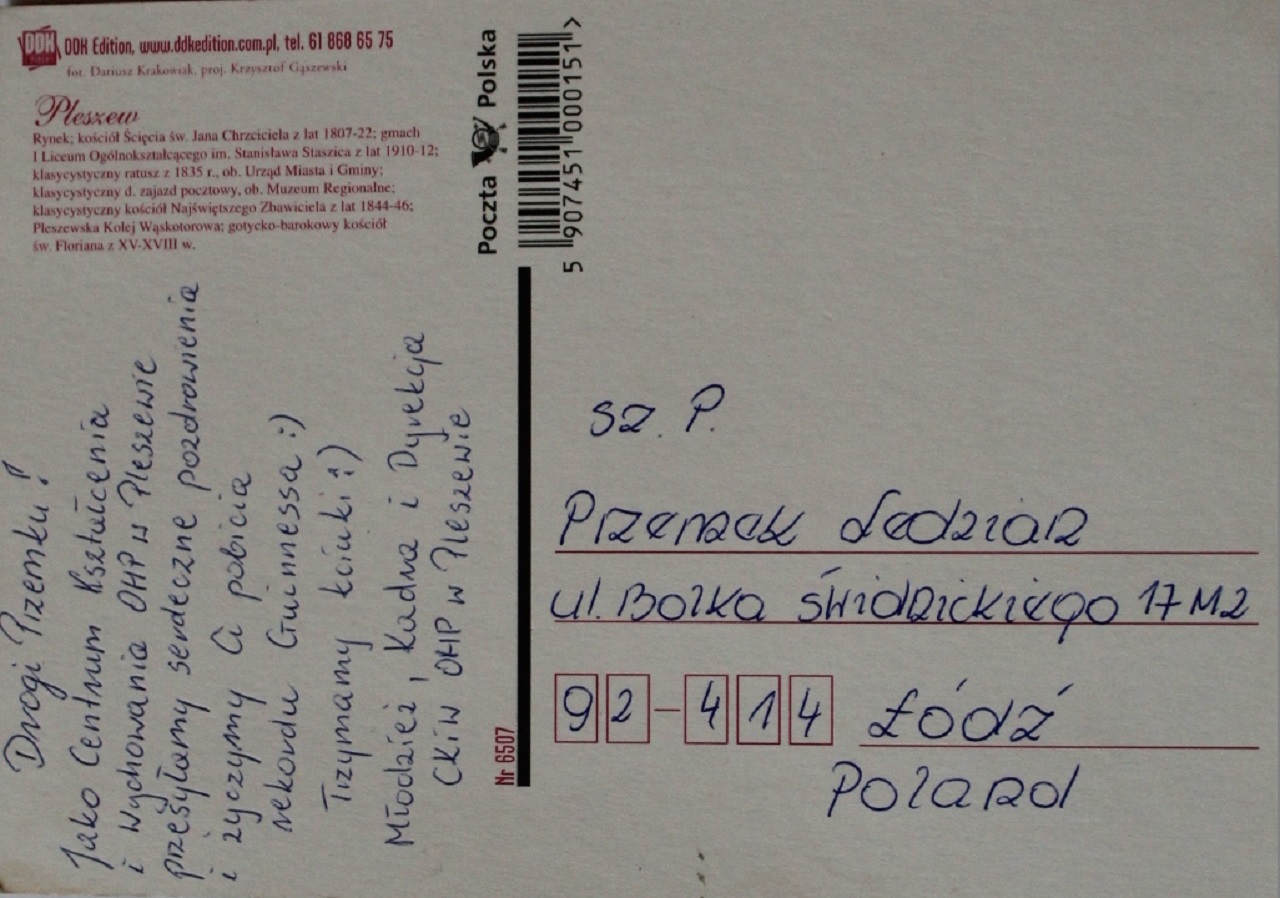 DDK
DDK Edition, www.ddkedition.com.pl, tel. 61 868 65 75
fot. Dariusz Krakowiak, proj. Krzysztof Gąszewski
Pleszew
Rynek; kościół Ścięcia św. Jana Chrzciciela z lat 1807-22; gmach
I Liceum Ogólnokształcącego im. Stanisława Staszica z lat 1910-12;
klasycystyczny ratusz z 1835 r., ob. Urząd Miasta i Gminy;
klasycystyczny d. zajazd pocztowy, ob. Muzeum Regionalne;
klasycystyczny kościół Najświętszego Zbawiciela z lat 1844-46;
Pleszewska Kolej Wąskotorowa; gotycko-barokowy kościół
św. Floriana z XV-XVIII w.
Poczta Polska
5 907451 000151 >
Nr 6507
Drogi Przemku!
Jako Centrum Kształcenia
i Wychowania OHP w Pleszewie
przesyłamy serdeczne pozdrowienia
i życzymy Ci pobicia
rekordu Guinnessa :)
Trzymamy kciuki :)
Młodzież, Kadra i Dyrekcja
CKiW OHP w Pleszewie
SZ. P.
Przemek
ul. Bolka Świdnickiego 17 M2
92-414 Łódź
Poland